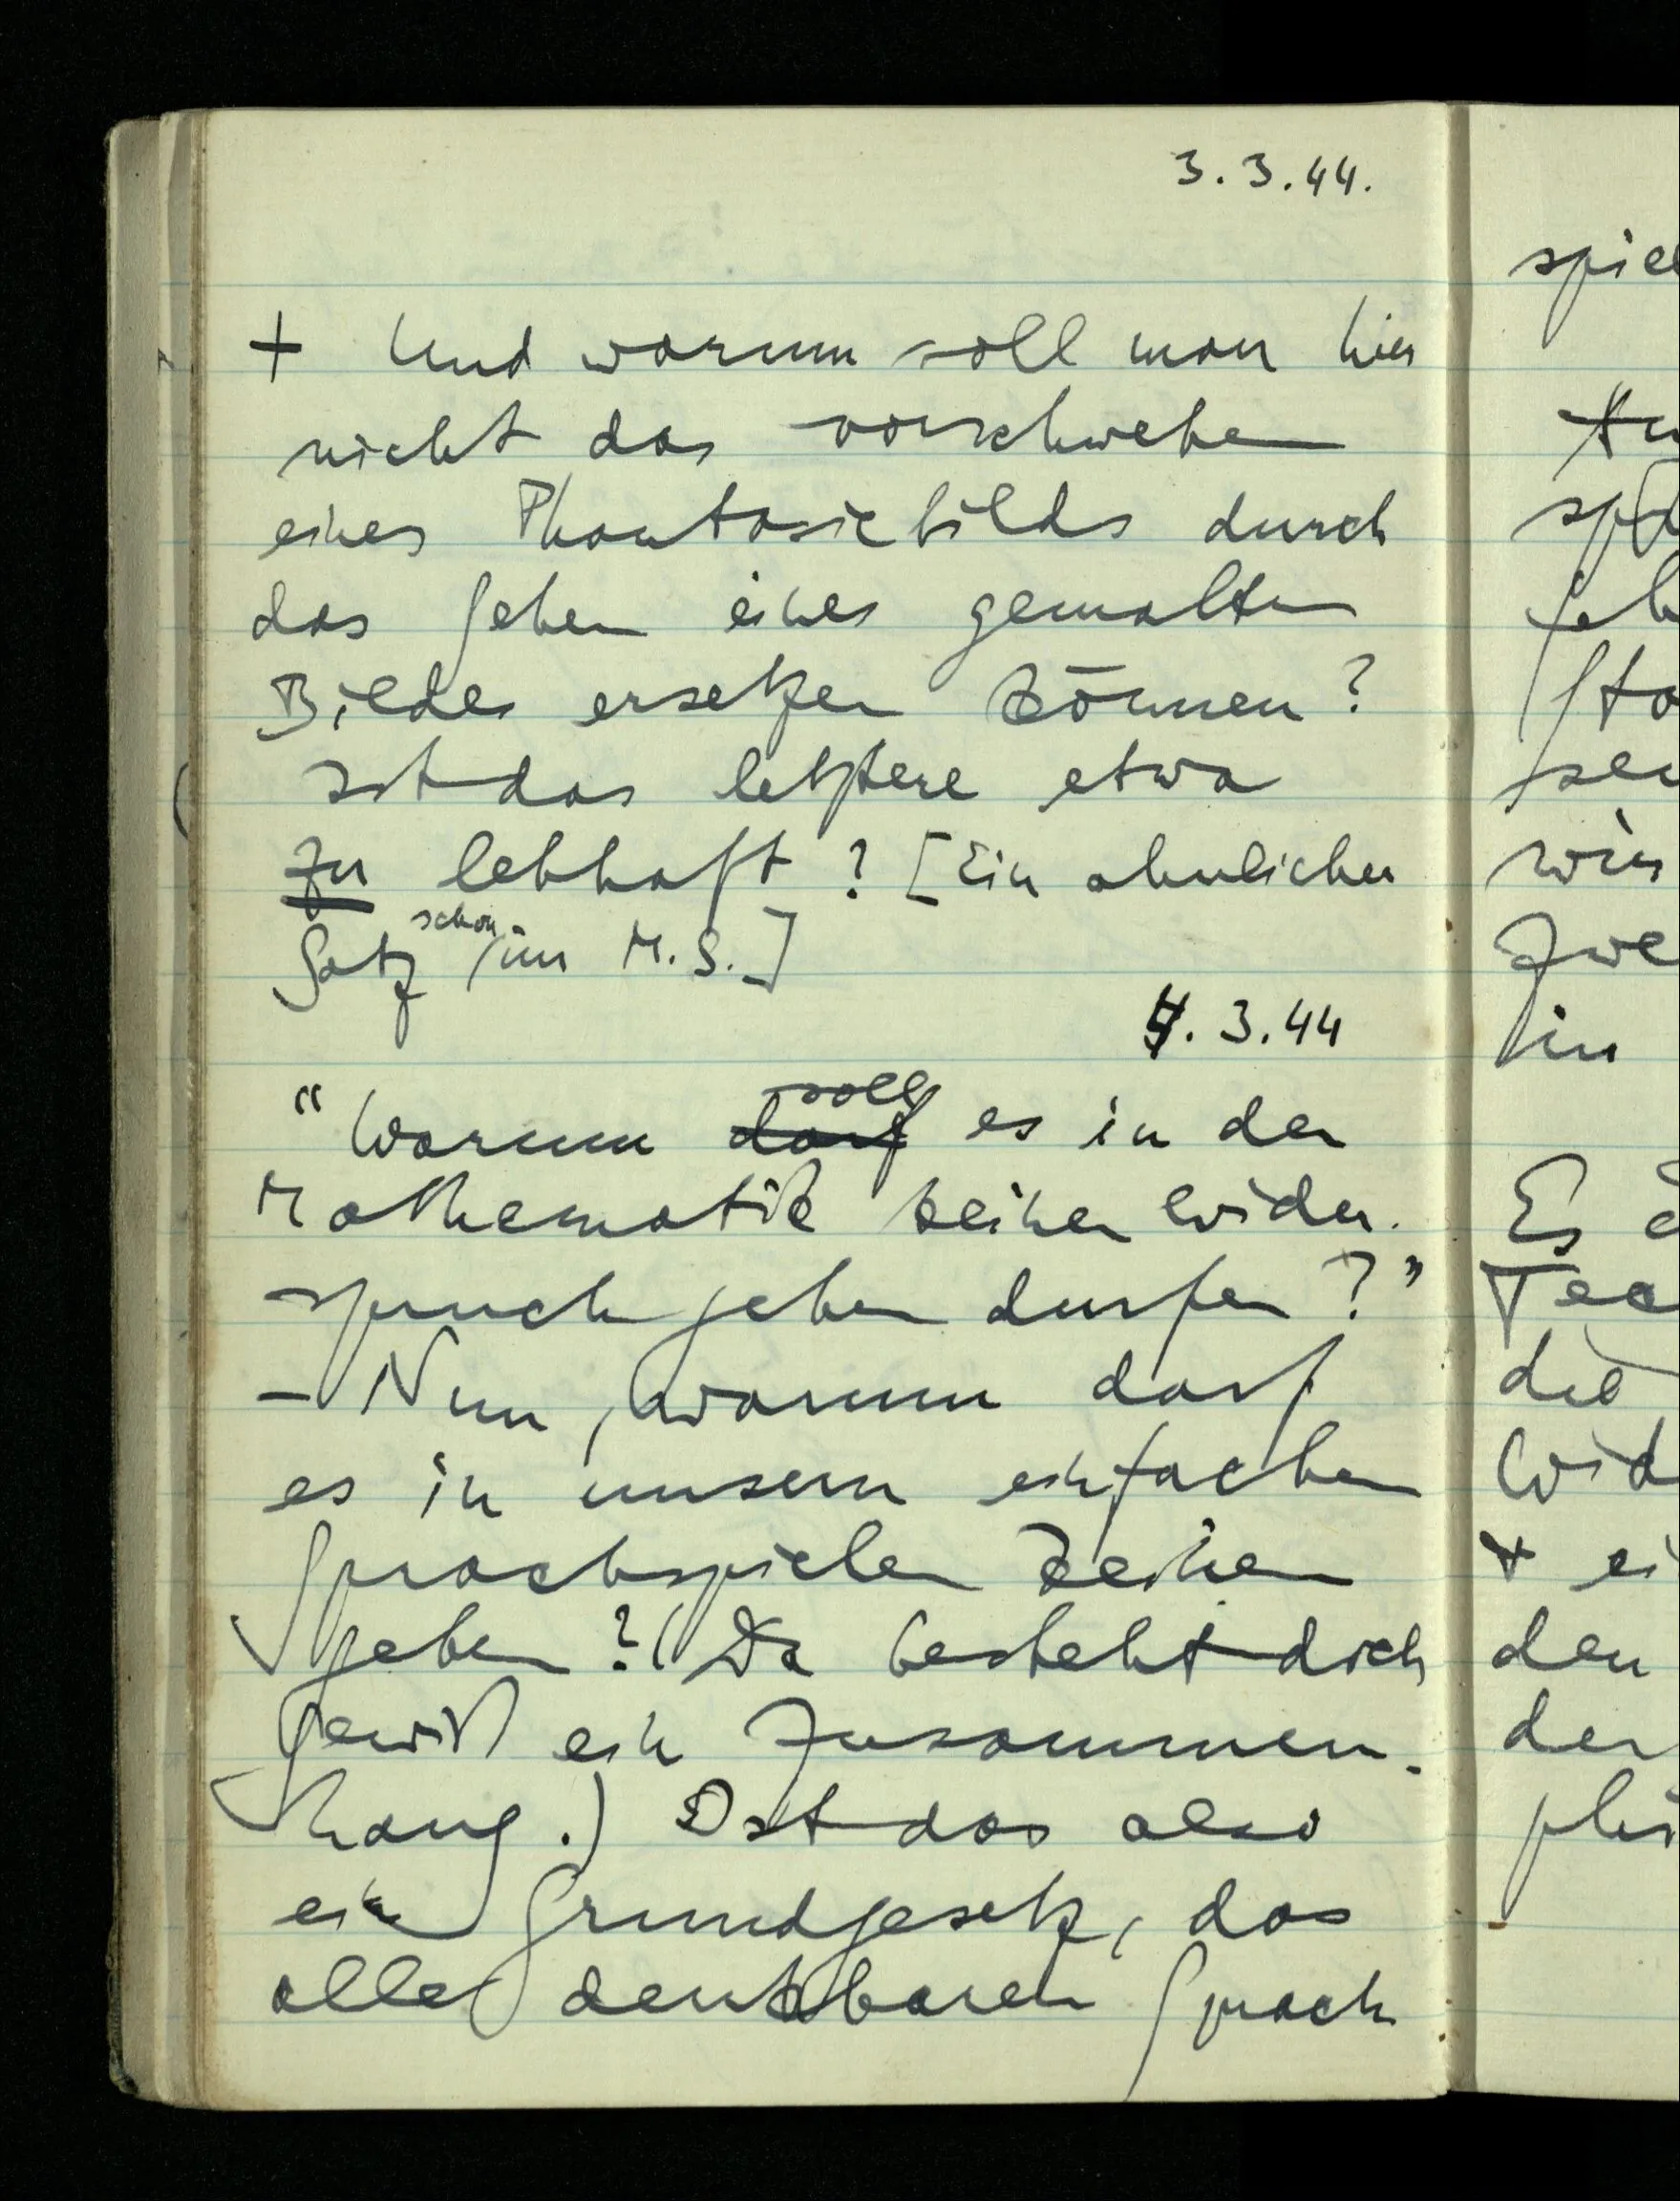 3.3.44.
+ Und warum soll man hier
nicht das vorschweben
eines Phantasiebilds durch
das Sehen eines gemalten
Bildes ersetzen können?
Ist das letztere etwa
zu lebhaft? [Ein ahnlicher
Satz schon im M.S.]
4.3.44
"Warum darf soll es in der
Mathematik keinen Wider-
spruch geben durfen?"
– Nun, warum darf
es in unsern einfachen
Sprachspielen keinen
geben? (Da besteht doch
gewiß ein Zusammen-
hang.) Ist das also
ein Grundgesetz, das
alle denkbaren Sprach
spiel
Es
den